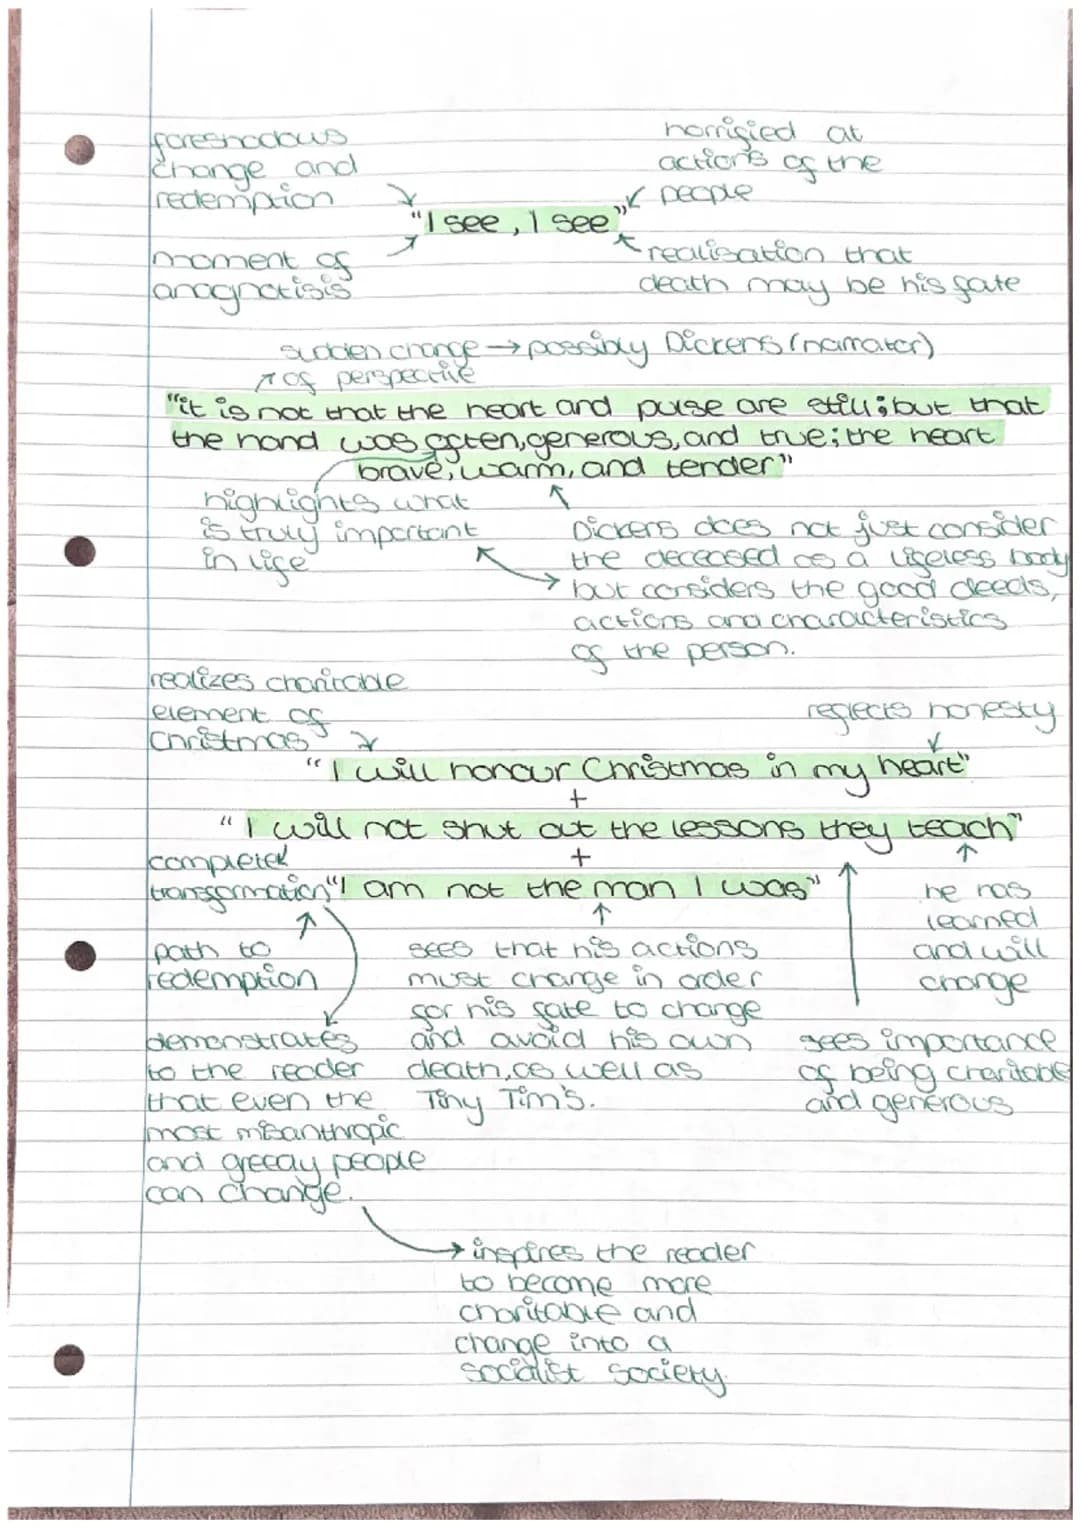 foreshadows
change and
redemption
horrified at
actions of the
people
"I see, I see"
moment of
anagnotisis
realisation that
death may be his fate
sudden change → possibly Dickens (narrator)
of perspective
"it is not that the heart and pulse are still; but that
the hand was often, generous, and true; the heart
brave, warm, and tender"
highlights what
is truly important
in life
Dickens does not just consider
the deceased as a lifeless body
but considers the good deeds,
actions and characteristics
of the person.
realizes charitable
element of
Christmas
reflects honesty
"I will honour Christmas in my heart"
+
"I will not shut out the lessons they teach"
+
complete
transformation "I am not the man I was"
he has
learned
and will
change
path to
redemption
sees that his actions
must change in order
for his fate to change
and avoid his own
death, as well as
Tiny Tim's.
sees importance
of being charitable
and generous
demonstrates
to the reader
that even the
most misanthropic
and greedy people
can change.
→ inspires the reader
to become more
charitable and
change into a
socialist society.